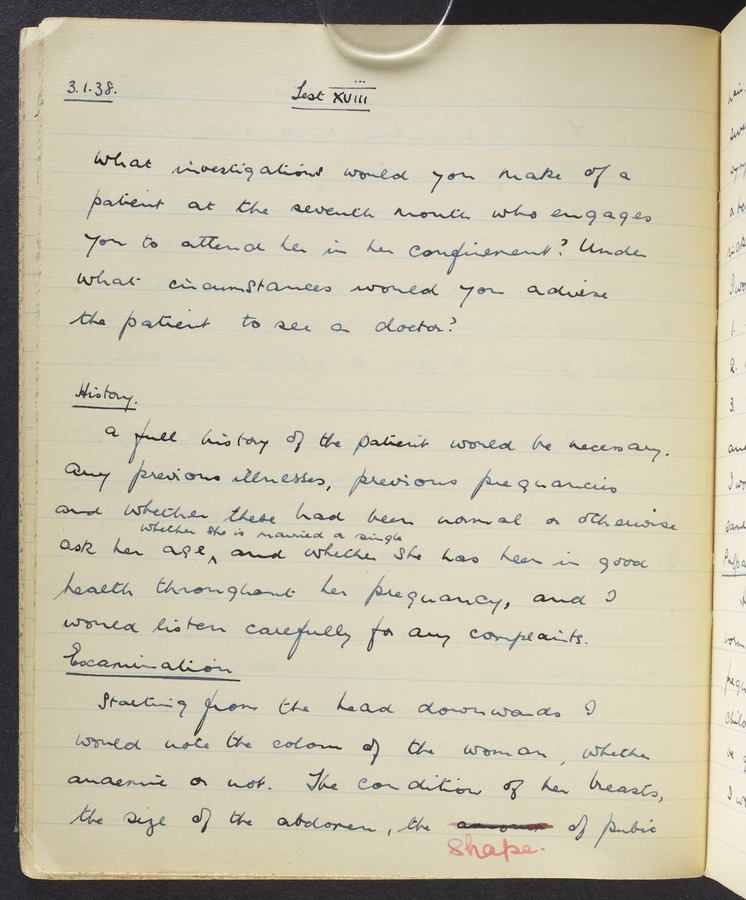 3.1.38. Test XVIII
What investigations would you make of a
patient at the seventh month who engages
you to attend her in her confinement? Under
what circumstances would you advise
the patient to see a doctor?
History.
A full history of the patient would be necessary.
Any previous illnesses, previous pregnancies
and whether these had been normal or otherwise
whether she is married or single
ask her age, ^ and whether she has been in good
health throughout her pregnancy, and I
would listen carefully for any complaints.
Examination
Starting from the head downwards I
would note the colour of the woman, whether
anaemic or not. The condition of her breasts,
the size of the abdomen, the amount of pubic
Shape.
hair,
1.
2.
3.
I wo